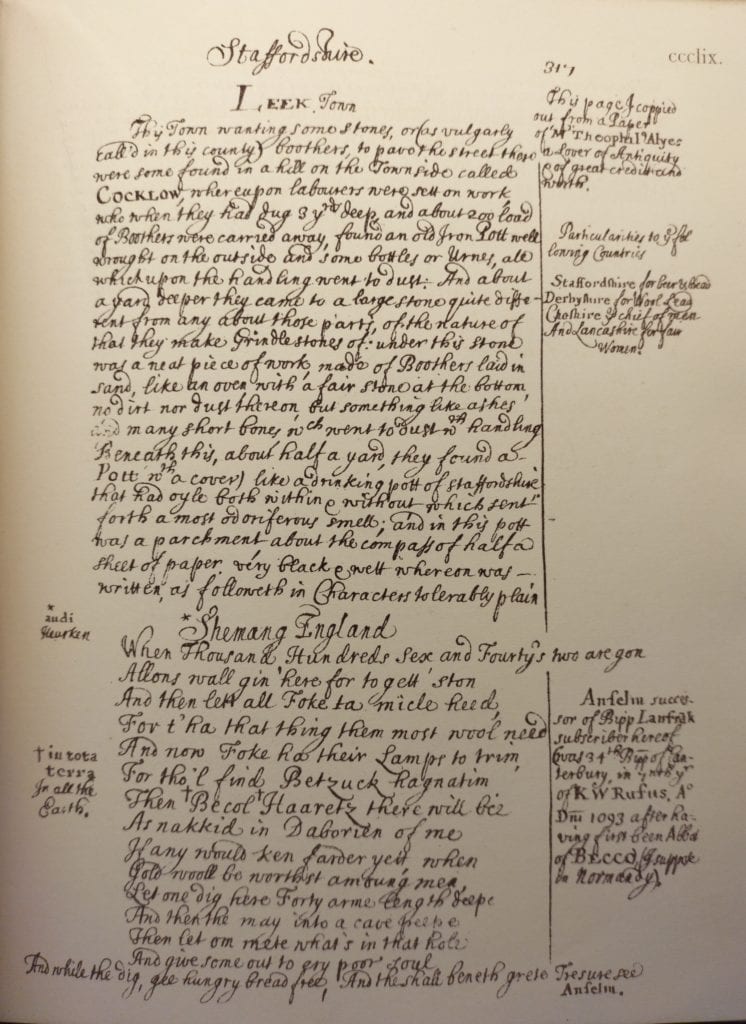 Staffordshire.
317
ccclix.
LEEK Town
This Town wanting some stones, or (as vulgarly
call'd in this county) boothers, to pave the street there
were some found in a hill on the Town side called
COCKLOW, whereupon labourers were sett on work
who when they had dug 3 yds deep, and about 200 load
of Boothers were carried away, found an old Iron Pott well
wrought on the outside and some bottles or Urnes, all
which upon the handling went to dust: And about
a yard deeper they came to a large stone quite diffe-
rent from any about those parts, of the nature of
that they make Grindlestones of: under this stone
was a neat piece of work made of Boothers laid in
sand, like an oven with a fair stone at the bottom
no dirt nor dust thereon, but something like ashes
and many short bones wch went to dust wth handling
Beneath this, about half a yard, they found a
Pott wth a cover) like a drinking pott of staffordshire
that had oyle both within & without which sent
forth a most odoriferous smell; and in this pott
was a parchment about the compass of half a
sheet of paper, very black & wett whereon was —
written, as followeth in Characters tolerably plain
This page I copied
out from a Paper
of Mr Theophils Alyes
a Lover of Antiquity
& of great credit and
worth.
Particularities to ye fol
lowing Countries
Staffordshire for beer & bead
Derbyshire for Wool Lead
Cheshire ye chief of men
And Lancashire for fair
Women.
*Shemang England
* audi
Heurken
When Thousand Hundreds Sex and Fourty's two are gon
Allons wall gin' here for to gett ston
And then lett all Foke ta micle heed,
For t'ha that thing them most wool need
And now Foke ha their Lamps to trim,
For tho'l find Betzuck hagnatim
Then †Becol Haaretz there will bee
As nakkid in Daborien of me
If any would ken farder yett when
Gold wooll be worthst amoung men,
Let one dig here Forty arme length deepe
And then the may into a cave peepe
Then let om mete what's in that hole
And give some out to ery poor soul
And while the dig, gee hungry bread free, And the shall beneth grete Tresure see
Anselm.
† in tota
terra
In all the
Earth.
Anselm succes-
sor of Bipp Lanfrak
subscriber hereof
was 34th Bipp of Can-
terbury, in yr
of K W Rufus, Ao
Dm̄ 1093 after ha-
ving first been Abbt
of BECCO (I suppose
in Normandy)